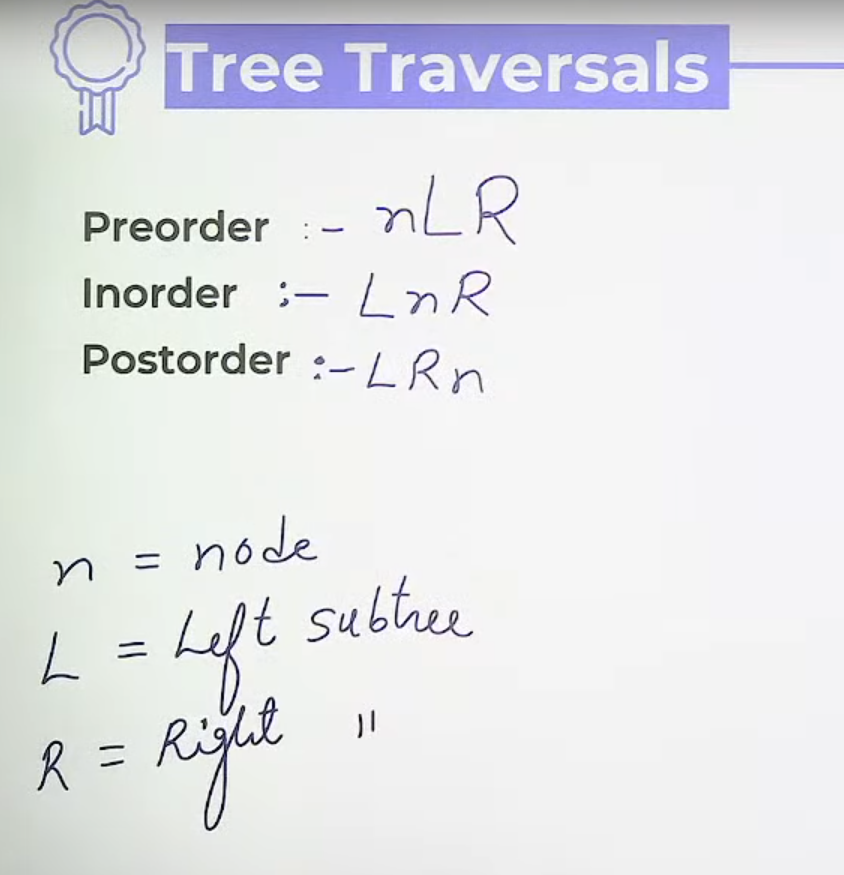 Tree Traversals
Preorder :- nLR
Inorder :- LnR
Postorder :- LRn
n = node
L = Left subtree
R = Right "